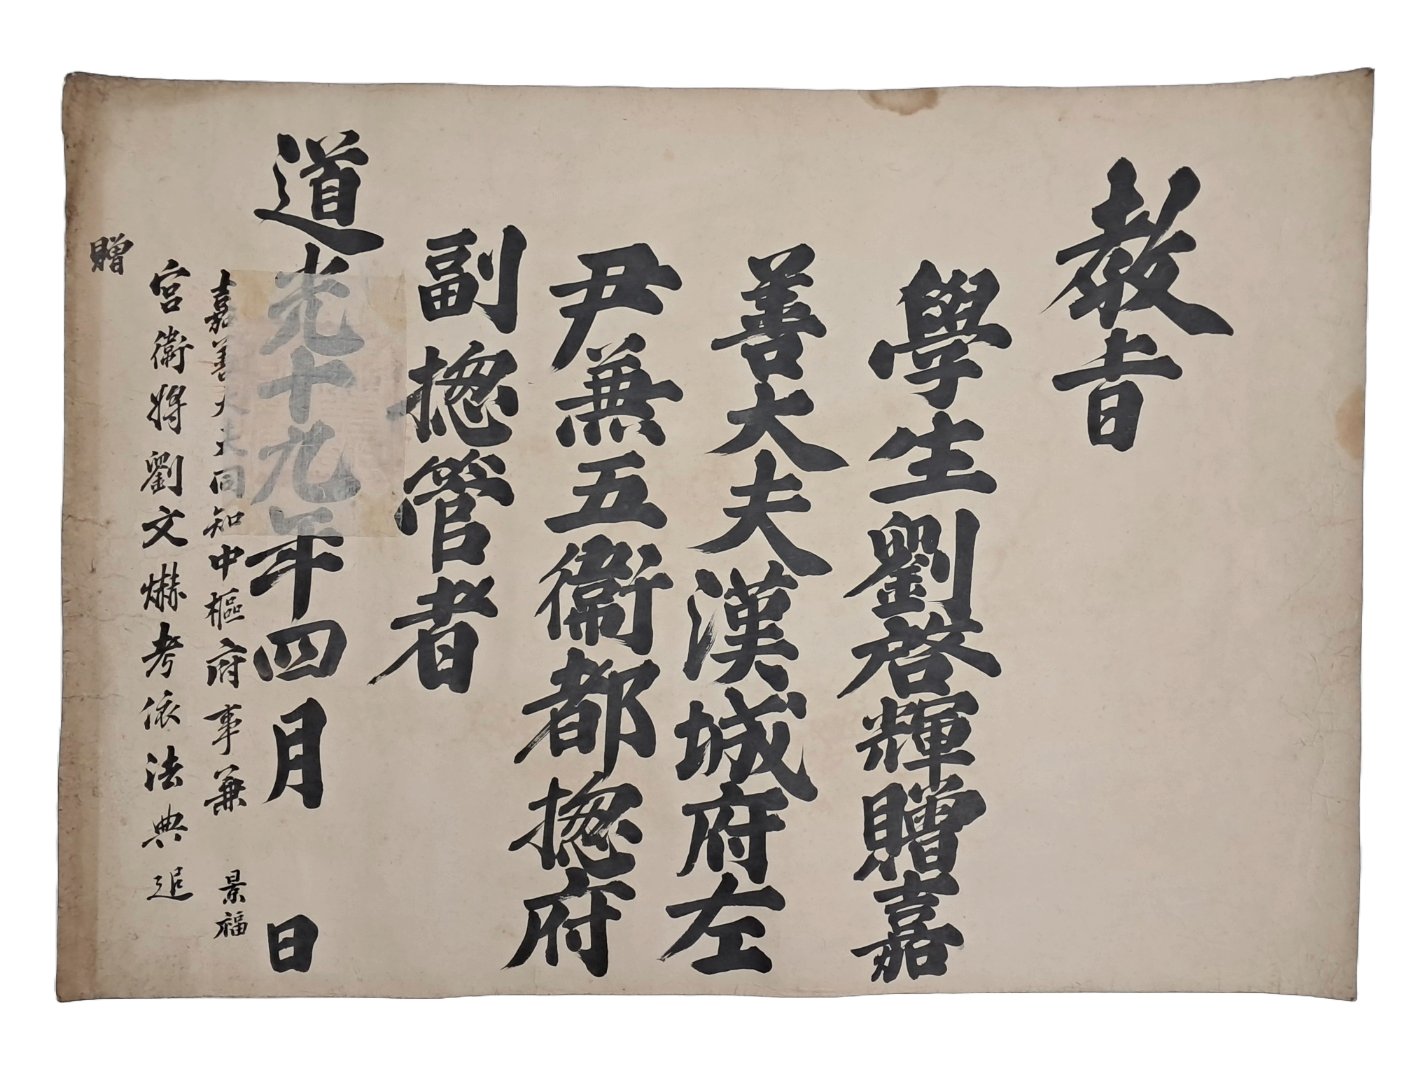 敎旨
學生劉啓輝贈嘉
善大夫漢城府左
尹兼五衛都摠府
副摠管者
道光十九年四月　日
嘉善大夫同知中樞府事兼　景福
宮衛將劉文爀考依法典追
贈